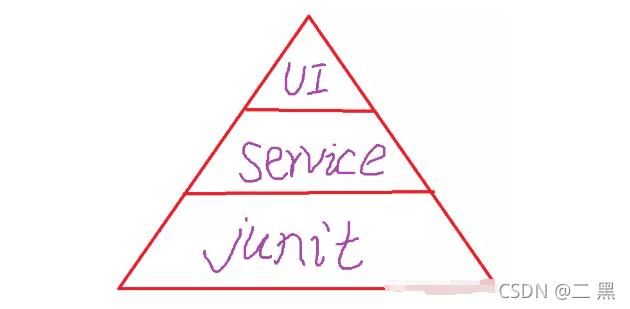 UI
service
junit
CSDN @二 黑